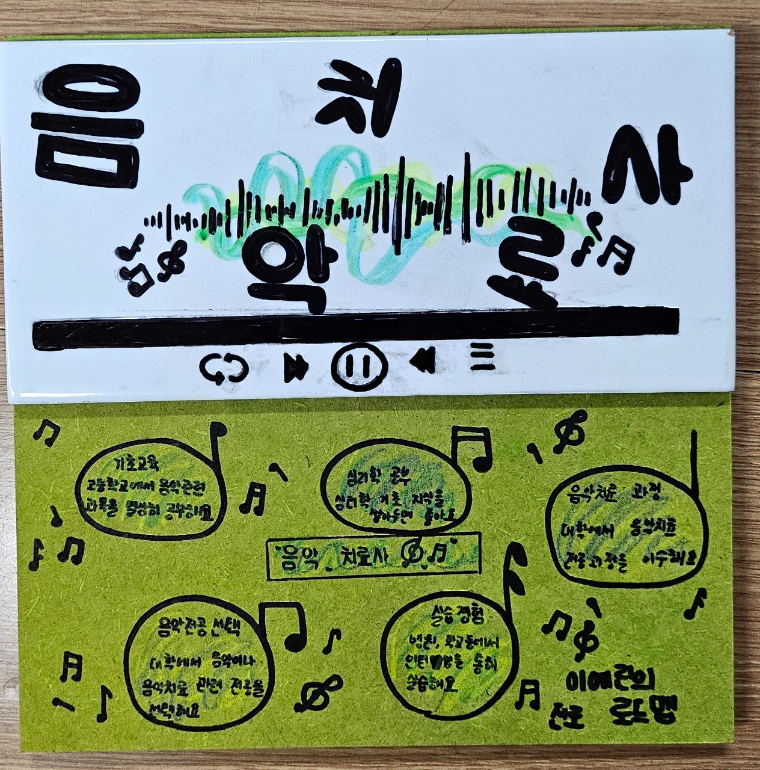 음악치료사
기초교육
고등학교에서 음악관련
과목을 열심히 공부해요
심리학 공부
심리학 기초 지식을
쌓아두면 좋아요
음악치료 과정
대학에서 음악치료
전공과정을 이수해요
"음악 치료사"
음악전공 선택
대학에서 음악이나
음악치료 관련 전공을
선택해요
실습경험
병원, 학교등에서
인턴쉽을 통해
실습해요
이예린의
진로 로드맵